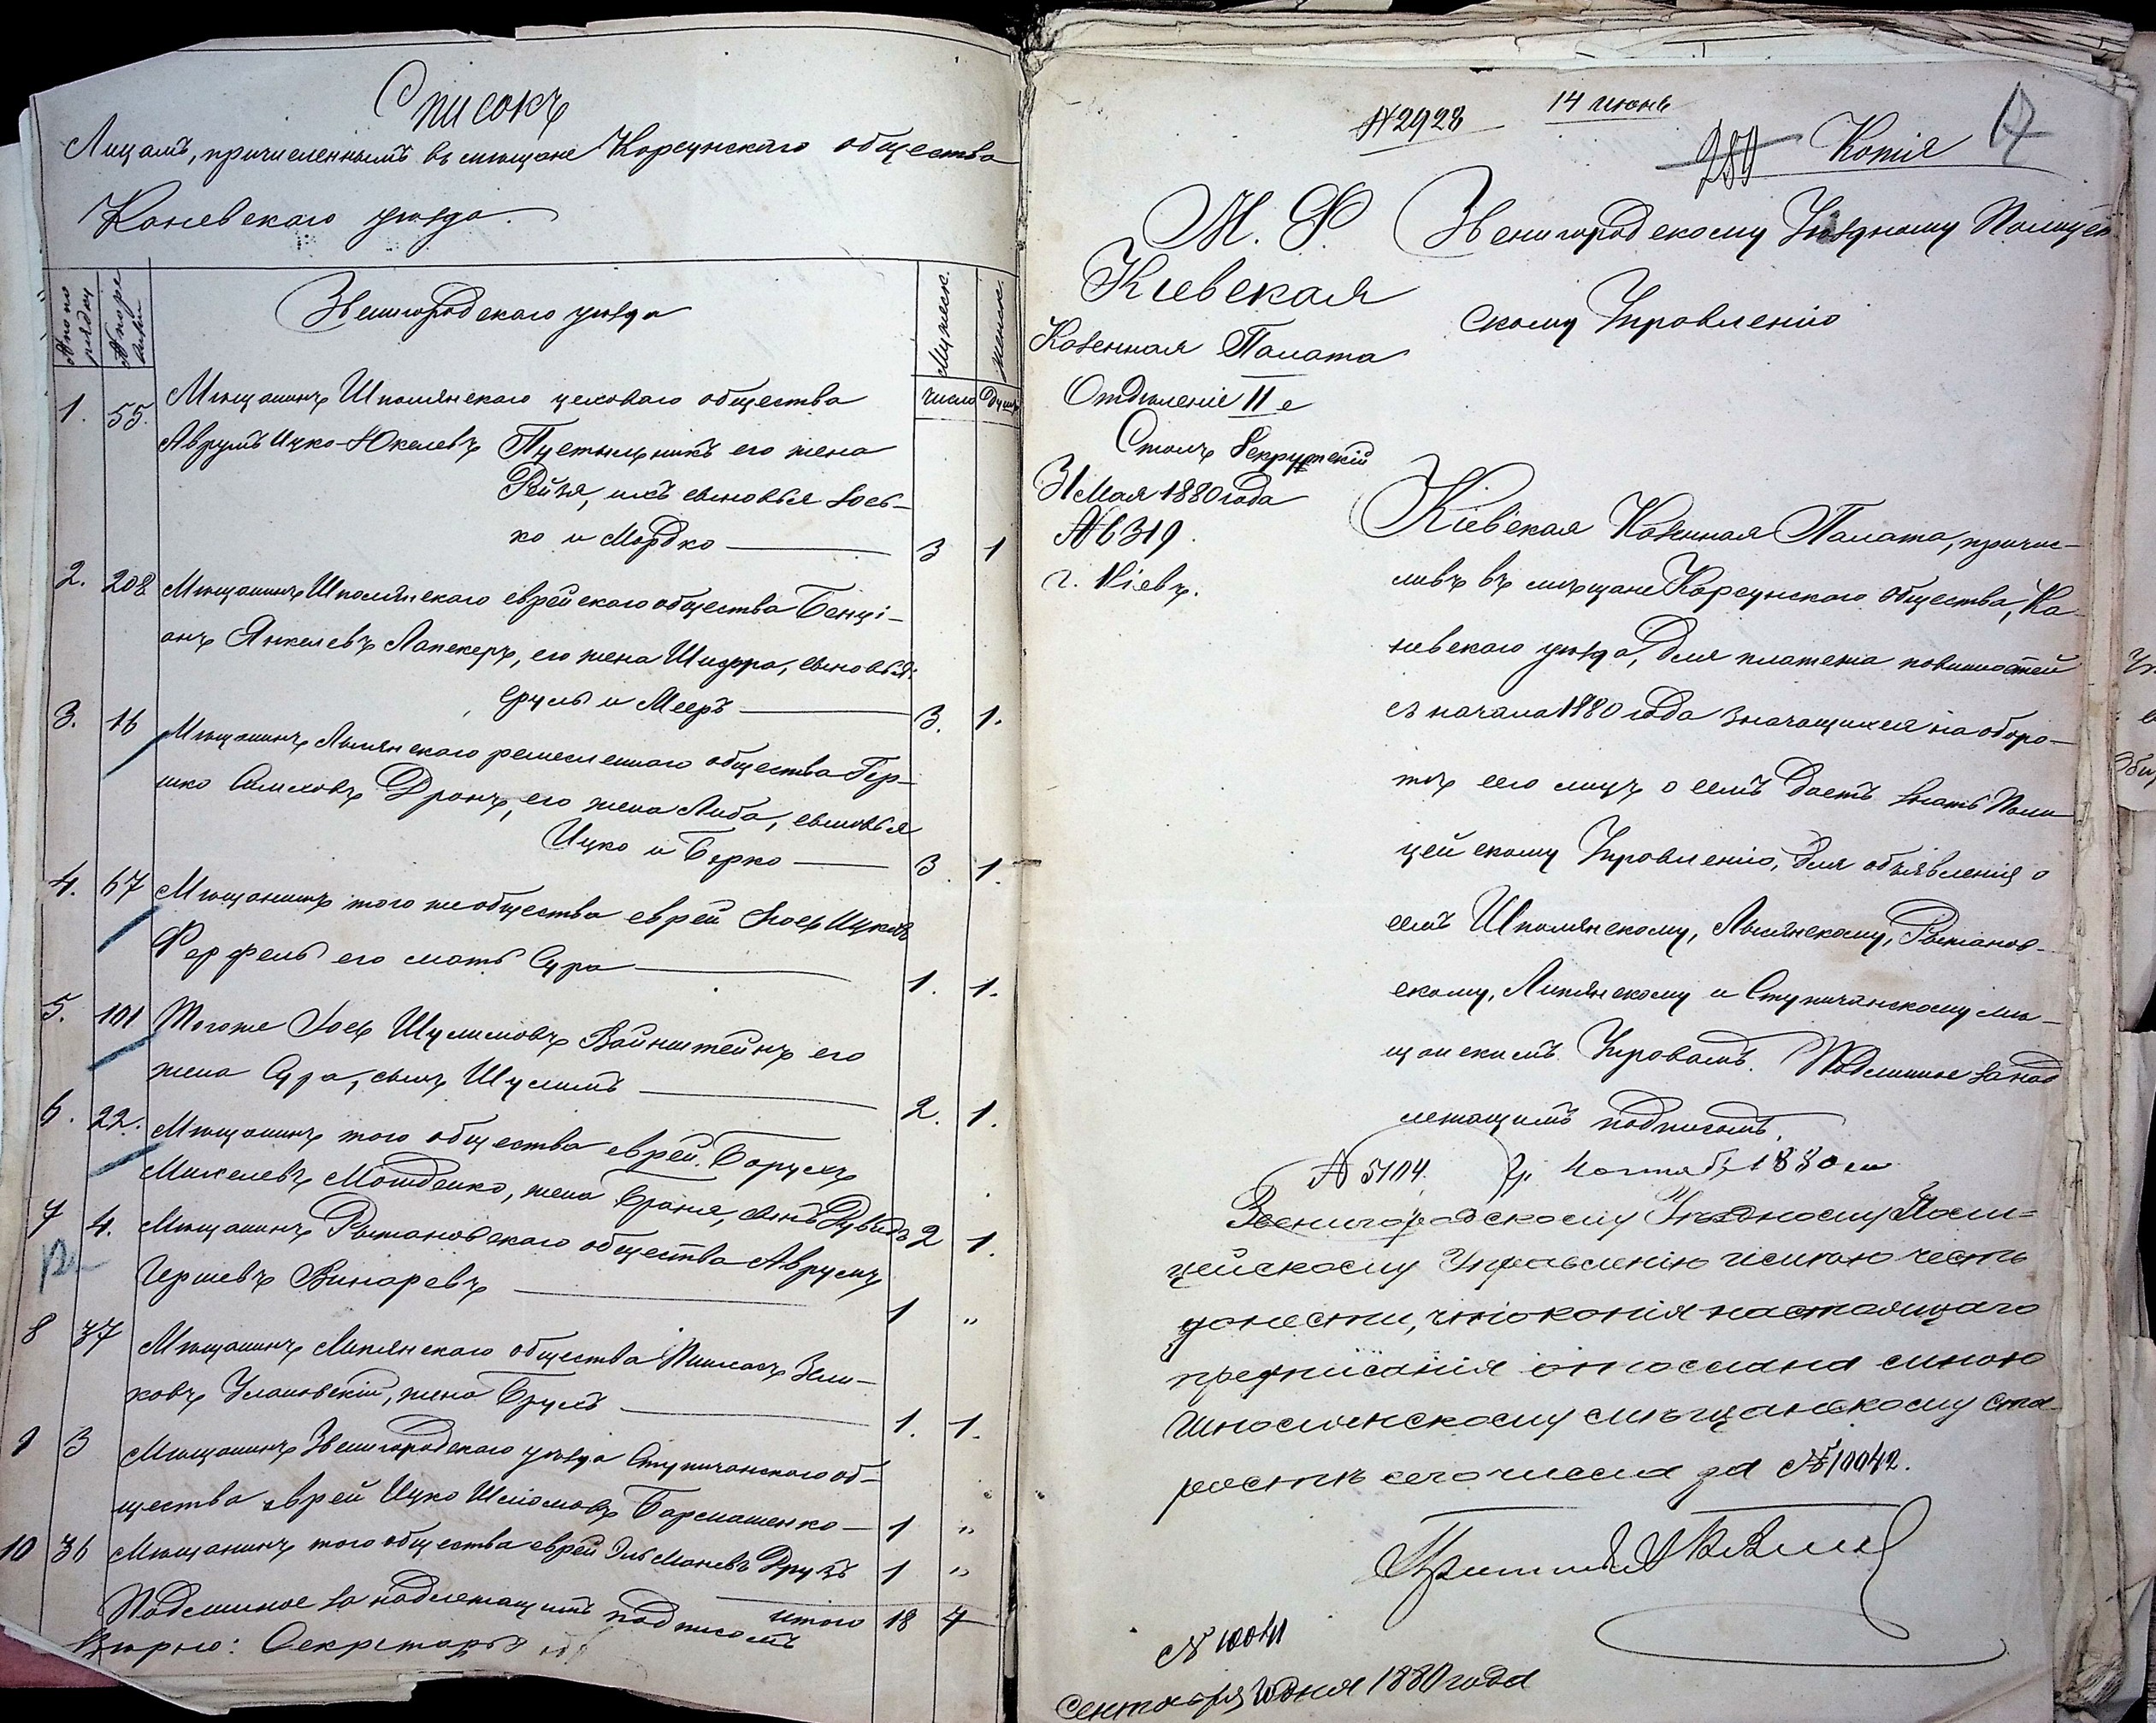 Списокъ
Лицамъ, причисленнымъ въ мѣщане Корсунскаго общества
Каневскаго уѣзда.
№ по порядку
№ по ре
Звенигородскаго уѣзда
Мужеск.
женск.
число душъ
1. 55. Мѣщанинъ Шполянскаго цеховаго общества
Аврумъ Ицко-Юкелевъ Пустыльникъ его жена
Рейзя, ихъ сыновья Iось-
ко и Мордко 3 1
2. 208 Мѣщанинъ Шполянскаго еврейскаго общества Бенці-
онъ Янкелевъ Лапекеръ, его жена Шифра, сыновья:
Сруль и Мееръ 3. 1.
3. 16 Мѣщанинъ Лысянскаго ремесленнаго общества Гер-
шко Симховъ Дронъ, его жена Либа, сыновья
Ицко и Берко 3 1.
4. 67 Мѣщанинъ того же общества еврей Іосъ Ицковъ
Ферфель его мать Сура 1. 1.
5. 101 Тогоже Іосъ Шулимовъ Вайнштейнъ его
жена Сура, сынъ Шулимъ 2. 1.
6. 22. Мѣщанинъ того общества еврей Борухъ
Михелевъ Мошденко, жена Браня, сынъ Дувидъ 2 1.
7 4. Мѣщанинъ Рыжановскаго общества Аврумъ
Гершевъ Винаревъ 1 "
8 37 Мѣщанинъ Лысянскаго общества Пинхасъ Зель-
ковъ Улановскій, жена Бруха 1. 1.
9 3 Мѣщанинъ Звенигородскаго уѣзда Ступичанскаго об-
щества еврей Ицко Шліомовъ Бармашенко 1 "
10 36 Мѣщанинъ того общества еврей Эль Маневъ Друзь 1 "
итого 18 7
Подлинное за надлежащимъ подписомъ
Вѣрно: Секретарь
№2928 14 июня
280 Копія 17
М. Ф.
Кіевская
Казенная Палата
Отдѣленіе II е
Столъ Рекрутскій
31 Мая 1880 года
№ 6319.
г. Кіевъ.
Звенигородскому Уѣздному Полицей
скому Управленію
Кіевская Казенная Палата, причис-
ливъ въ мѣщане Корсунскаго Общества, Ка
невскаго уѣзда, для платежа повинностей
съ начала 1880 года значащихся на оборо-
тѣ сего лицъ о семъ даетъ знать Поли
цейскому Управленію, для объявленія о
семъ Шполянскому, Лысянскому, Рыжанов-
скому, Лысянскому и Ступичанскому мѣ-
щанскимъ Управамъ. Подлинное за над
лежащимъ подписомъ.
№ 5104. 1880
Звенигородскому Уѣздному Поли=
цейскому Управленію имѣю честь
донести, что копія настоящаго
предписанія отослана мною
Шполянскому мѣщанскому ста
ростѣ сего числа за №10042.
№ 10041
Сентября 10 дня 1880 года